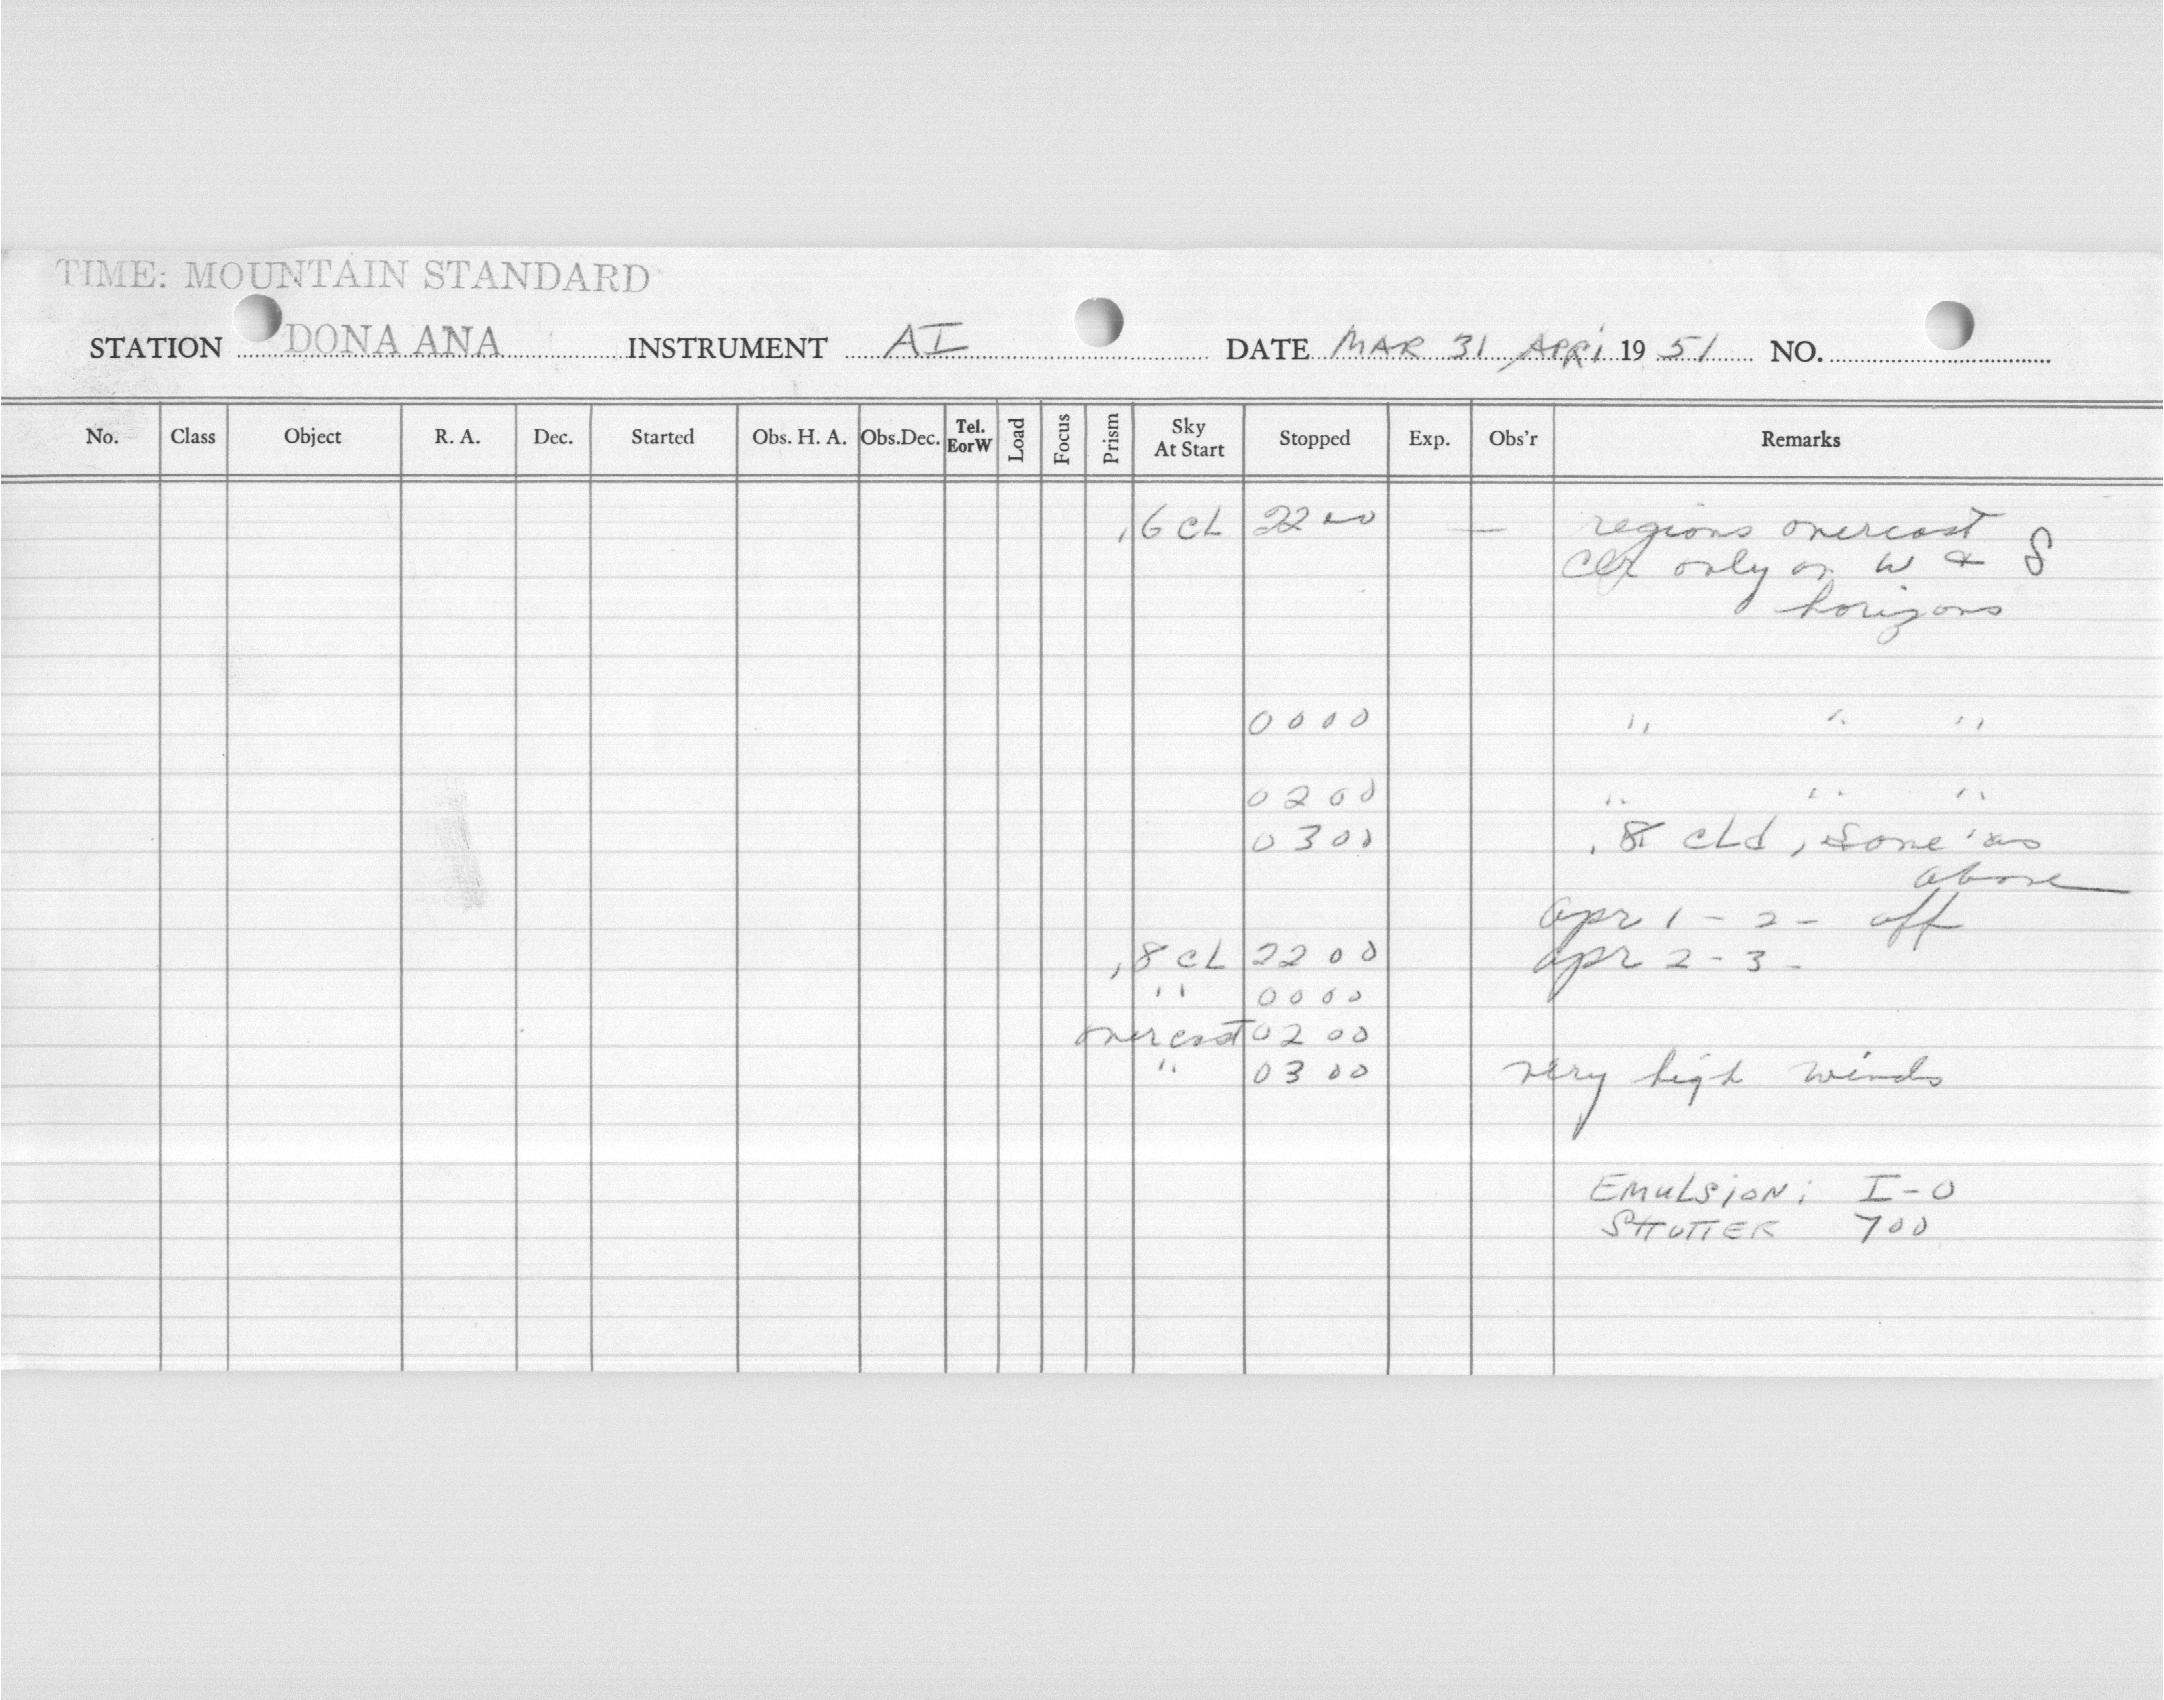 TIME: MOUNTAIN STANDARD
STATION DONA ANA INSTRUMENT AI DATE MAR 31 APRi 19 51 NO.
No. Class Object R. A. Dec. Started Obs. H. A. Obs.Dec. Tel. EorW Load Focus Prism Sky At Start Stopped Exp. Obs'r Remarks
.6 cL 2200 — regions overcast
clr only on W & S
horizons
0000 " " "
0200 " " "
0300 .8 cLd, same as
above
Apr 1 - 2 - off
.8 cL 2200 Apr 2 - 3 -
" 0000
overcast 0200
" 0300 very high winds
EMULSiON: I-O
SHUTTER 700